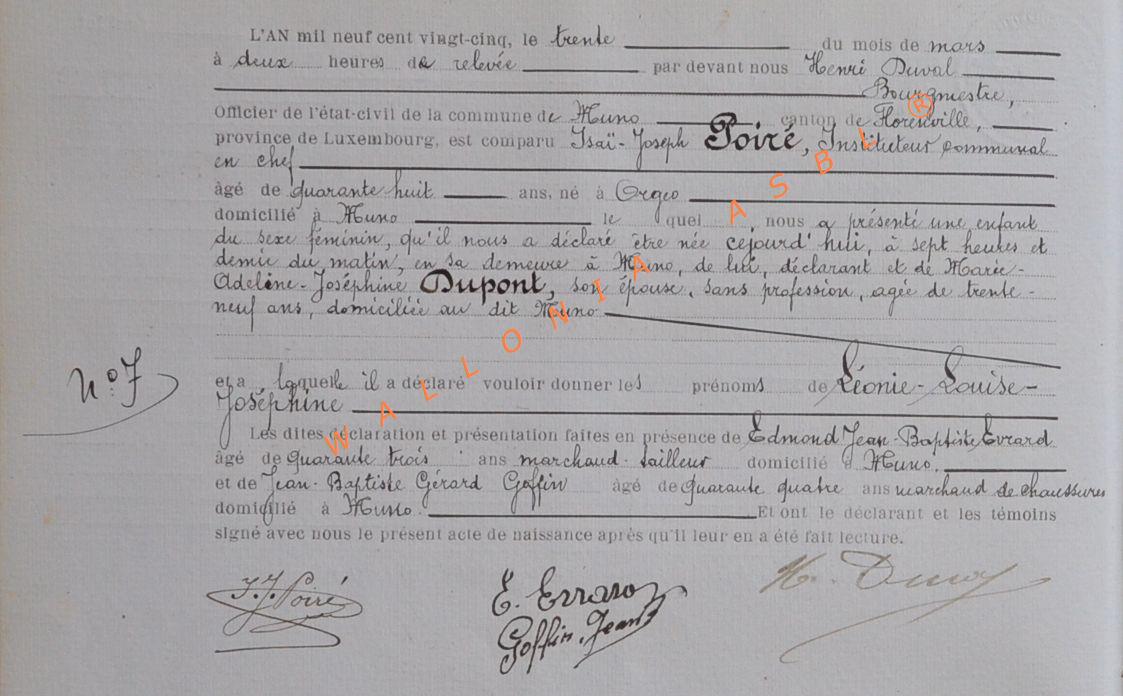 L'AN mil neuf cent vingt-cinq, le trente du mois de mars
à deux heures de relevée par devant nous Henri Duval
Bourgmestre,
Officier de l'état-civil de la commune de Muno canton de Florenville,
province de Luxembourg, est comparu Isaï-Joseph Poiré, Instituteur communal
en chef
âgé de quarante huit ans, né à Orgeo
domicilié à Muno le quel, nous a présenté une enfant
du sexe féminin, qu'il nous a déclaré être née cejourd'hui, à sept heures et
demie du matin, en sa demeure à Muno, de lui, déclarant et de Marie-
Adeline-Joséphine Dupont, son épouse, sans profession, agée de trente-
neuf ans, domiciliée au dit Muno
N° 7
et a, laquelle il a déclaré vouloir donner les prénoms de Léonie-Louise-
Joséphine
Les dites déclaration et présentation faites en présence de Edmond Jean-Baptiste Evrard
âgé de quarante trois ans marchand-tailleur domicilié à Muno,
et de Jean-Baptiste Gérard Goffin âgé de quarante quatre ans marchand de chaussures
domicilié à Muno. Et ont le déclarant et les témoins
signé avec nous le présent acte de naissance après qu'il leur en a été fait lecture.
I. J. Poiré
E. Evrard
H. Duval
Goffin, Jean
WALLONIA ASBL ®